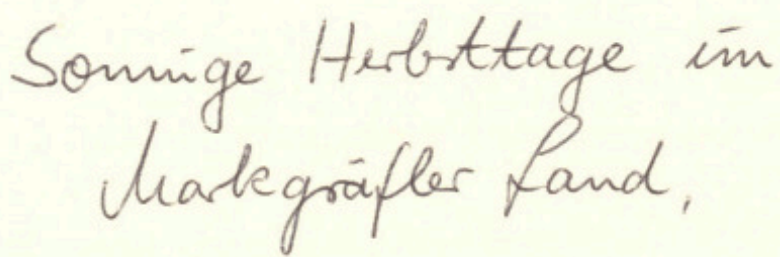 Sonnige Herbsttage im
Markgräfler Land,